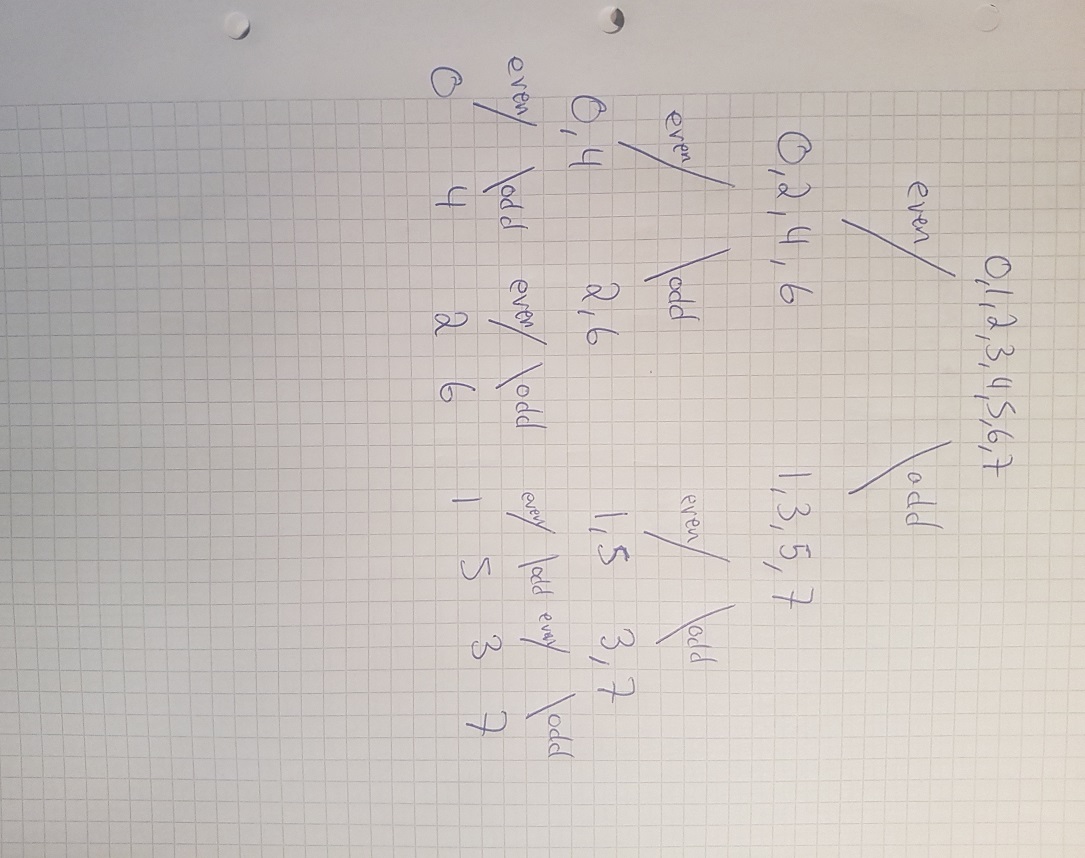 0,1,2,3,4,5,6,7
even odd
0,2,4,6 1,3,5,7
even odd even odd
0,4 2,6 1,5 3,7
even odd even odd even odd even odd
0 4 2 6 1 5 3 7